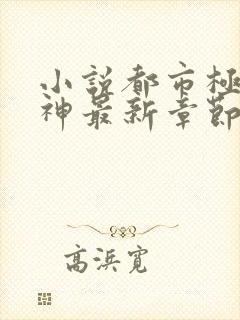 小說都市極
神最新章節
高浜寬